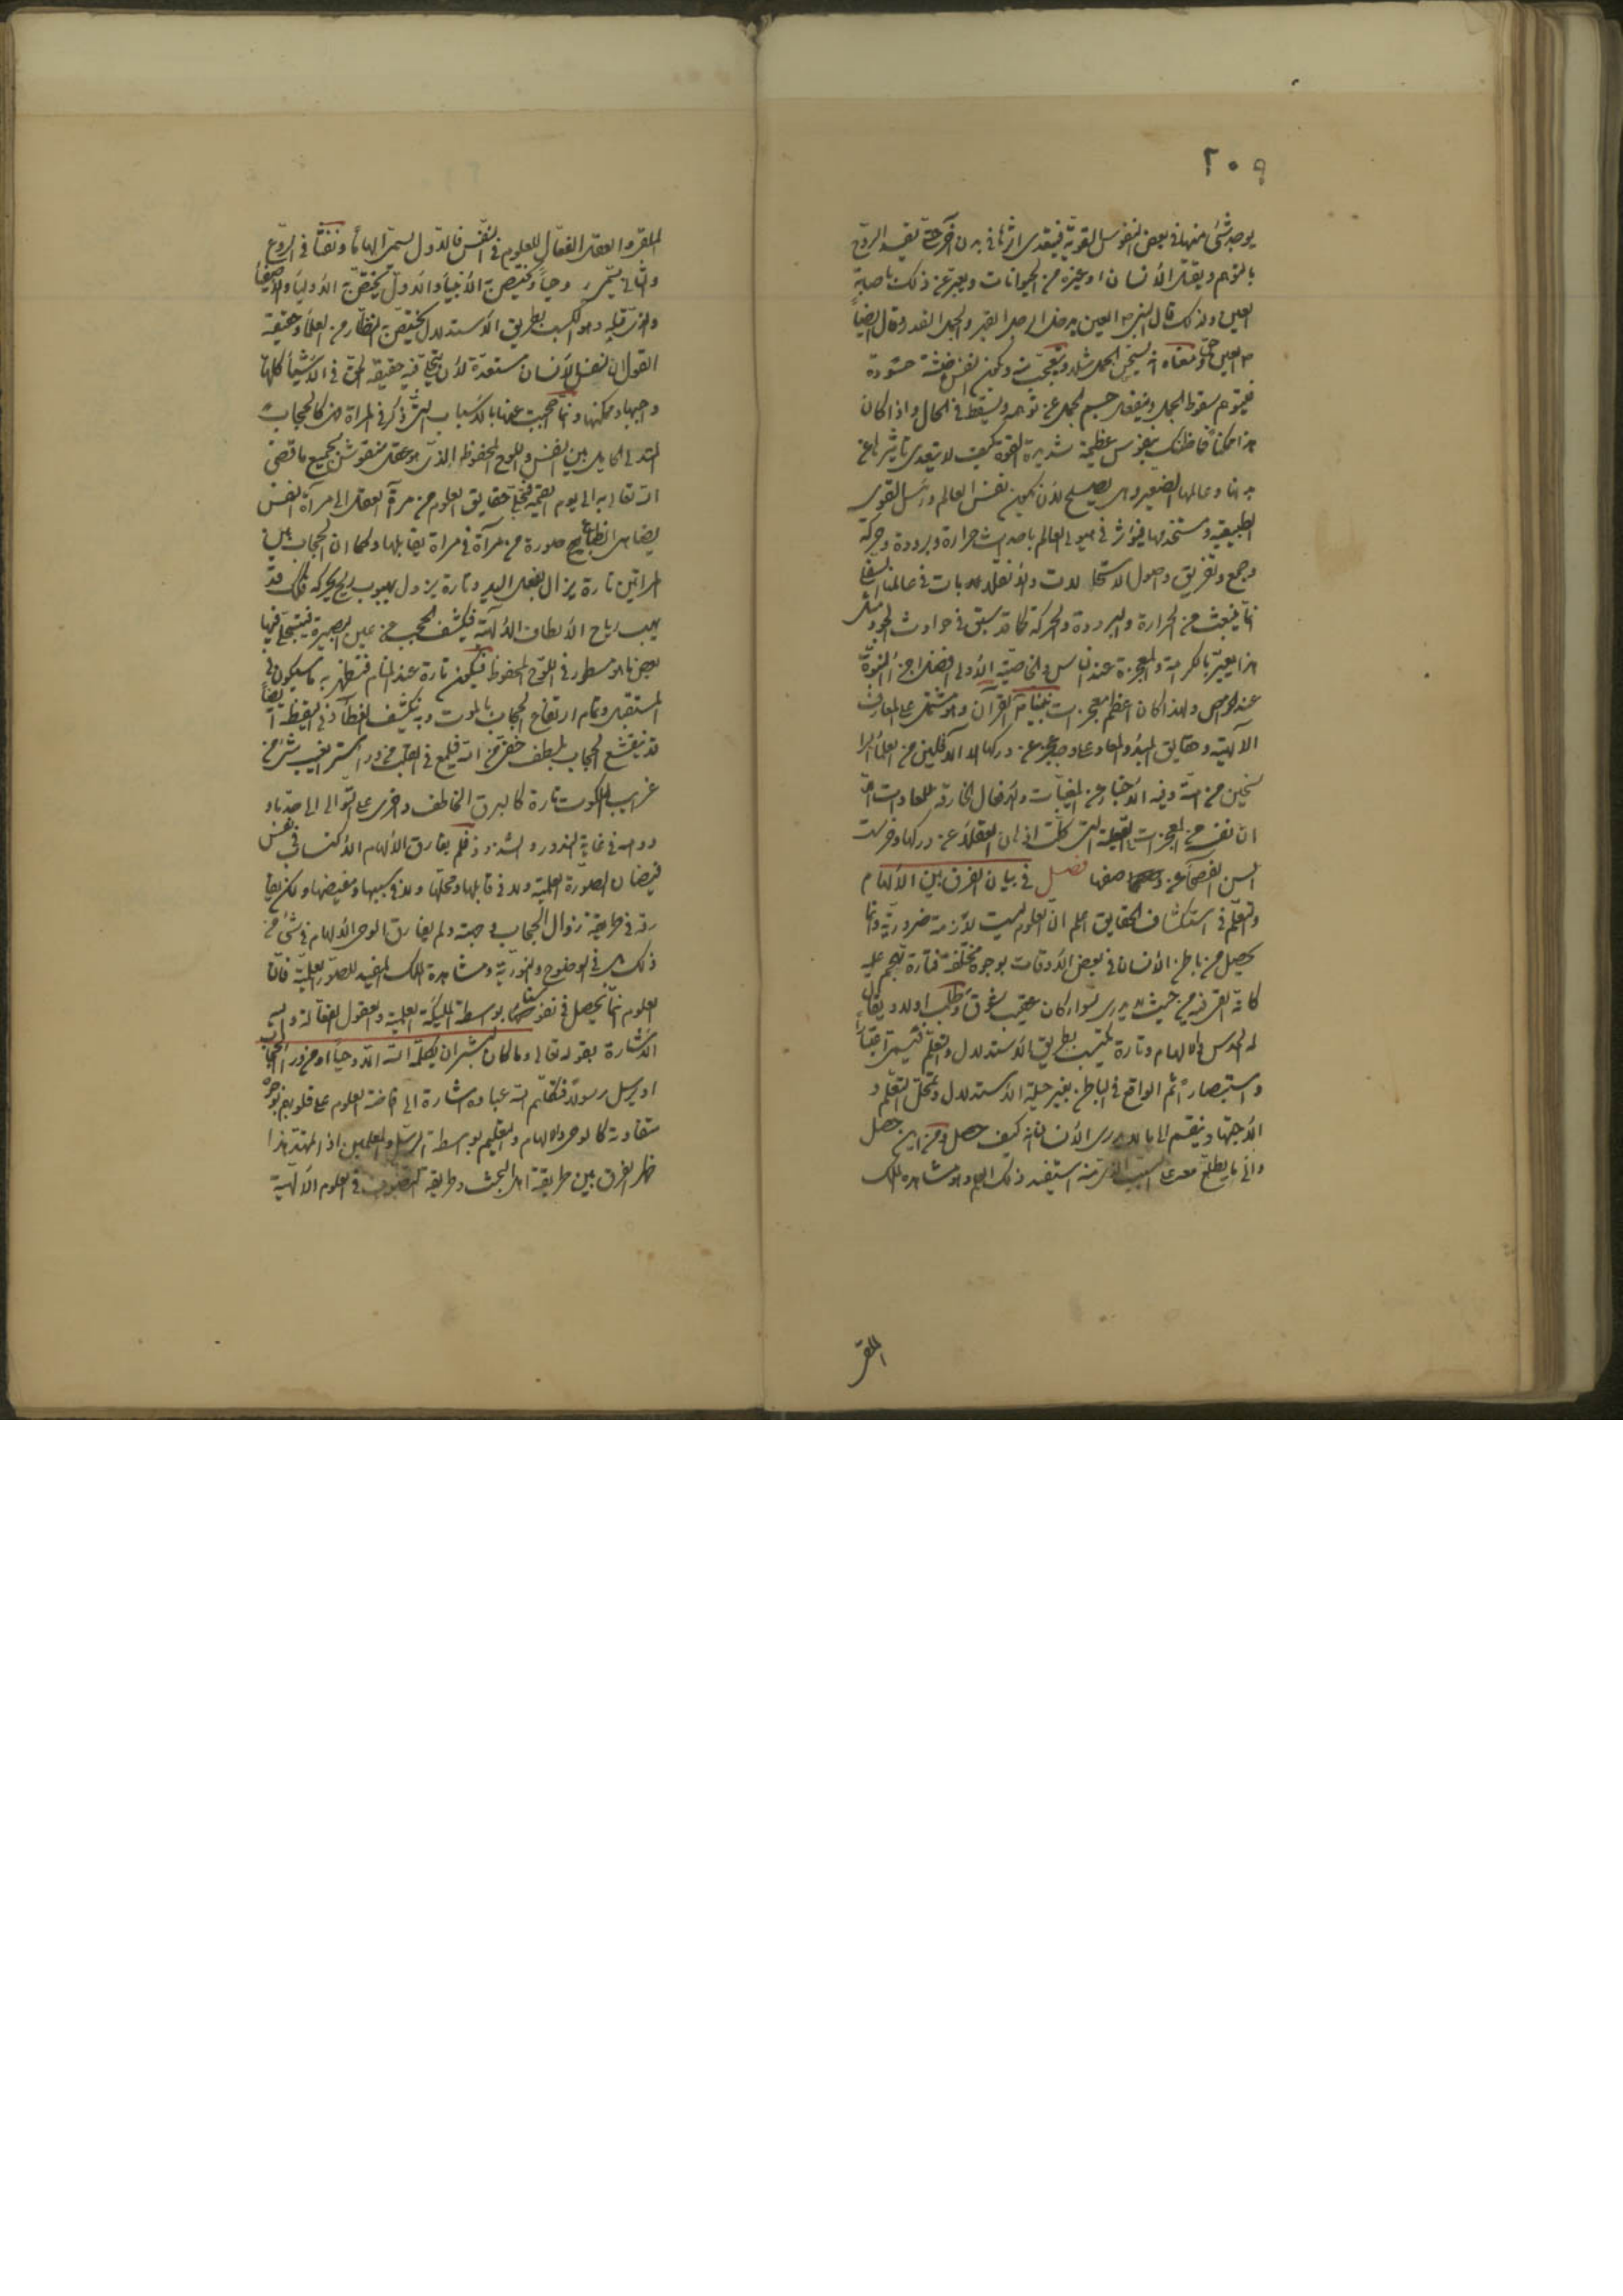 ٢٠٩
يوجد شئ منها في بعض النفوس القوية فيتعدى اثرها في بدن آخر حتى يفسد الروح
بالتوهم ويقتل الأنسان او غيره من الحيوانات ويعبر عن ذلك باصابة
العين ولذلك قال النبي ص العين يدخل الرجل القبر والجمل القدر وقال ايضاً
ص العين حق ومعناه انه يستحسن الجمل مثلا ويتعجب منه ويكون النفس خبيثة حسودة
فيتوهم سقوط الجمل وينفعل جسم الجمل عن توهمه ويسقط في الحال واذا كان
هذا ممكناً فما ظنك بنفوس عظيمة شديدة القوة كيف لا يتعدى تاثيرها عن
بدنها وعالمها الصغير وهي يصلح لأن يكون نفس العالم ورئيس القوى
الطبيعية ومستخدمها فيؤثر في هيولى العالم باحداث حرارة وبرودة وحركة
وجمع وتفريق واصول الاستحالات والأنقلابات في عالمنا السفلي
انما ينبعث من الحرارة والبرودة والحركة كما قد سبق في حوادث الجو ومثل
هذا يعبر بالكرامة والمعجزة عند الناس والخاصية الأولى افضل اجزاء النبوة
عند الخواص ولهذا كان اعظم معجزات نبينا ص القرآن وهو مشتمل على المعارف
الآلهية وحقايق المبدء والمعاد على وجه يعجز عن دركها الا الأقلين من العلماء الرا
سخين من امته وفيه الأخبار عن المغيبات والأفعال الخارقة للعادات
ان نفسه من المعجزات العقلية التي كلت اذهان العقلاء عن دركها وخرست
السن الفصحاء عن وصفها فصل في بيان الفرق بين الألهام
والتعلم في استكشاف الحقايق اعلم ان العلوم ليست لازمة ضرورية وانما
يحصل في باطن الأنسان في بعض الأوقات بوجوه مختلفة فتارة تهجم عليه
كانه القي فيه من حيث لا يدري سواء كان عقيب شوق وطلب او لا ويقال
له الحدس والالهام وتارة يكتسب بطريق الأستدلال والتعلم فيسمى اعتباراً
واستبصاراً ثم الواقع في الباطن بغير حيلة الأستدلال وتمحل التعلم و
الأجتهاد ينقسم الى ما لا يدري الأنسان انه كيف حصل ومن اين حصل
والى ما يطلع معه على السبب الذي منه استفيد ذلك العلم وهو مشاهدة الملك
الملقى
الملقى والعقل الفعال للعلوم في النفس فالأول يسمى الهاماً ونفثاً في الروع
والثاني يسمى وحياً ويختص به الأنبياء والأول يختص به الأولياء والأصفياء
والذي قبله وهو الكسب بطريق الأستدلال يختص به النظار من العلماء وحقيقة
القول ان نفس الأنسان مستعدة لأن يتجلى فيه حقيقة الحق في الأشياء كلها
واجبها وممكنها وانما حجبت عنها بالأسباب التي ذكر في المراة فهي كالحجاب
المتدلي الحايل بين النفس واللوح المحفوظ الذي هو عقل منقوش بجميع ما قضى
الله تعالى به الى يوم القيمة فتجلى حقايق العلوم من مرآة العقل الى مرآة النفس
يضاهي انطباع صورة من مرآة في مراة يقابلها وكما ان الحجاب بين
المراتين تارة يزال بفعل اليد وتارة يزول بهبوب ريح يحركه فكذلك قد
يهب رياح الألطاف الألهية فيكشف الحجب من عين البصيرة فيتجلى فيها
بعض ما هو مسطور في اللوح المحفوظ فيكون تارة عند المنام فتظهر به ما سيكون في
المستقبل وتمام ارتفاع الحجاب بالموت وبه ينكشف الغطاء وفي اليقظة ايضاً
قد ينقشع الحجاب بلطف خفي من الله فيلمع في القلب من وراء ستر الغيب شئ من
غرايب الملكوت تارة كالبرق الخاطف واخرى على التوالي الى حد ما و
دوامه في غاية الندور والشذوذ فلم يفارق الالهام الأكتساب في نفس
فيضان الصورة العلمية ولا في قابلها ومحلها ولا في سببها ومفيضها ولكن يفا
رقه في طريقة زوال الحجاب وجهته ولم يفارق الوحي الألهام في شئ من
ذلك بل في الوضوح والنورية ومشاهدة الملك المفيد للصور العلمية فان
العلوم انما يحصل في نفوسنا بواسطة الملائكة العلمية والعقول الفعالة واليه
الأشارة بقوله تعالى وما كان لبشر ان يكلمه الله الا وحياً او من وراء حجاب
او يرسل رسولا فتكليم الله عباده اشارة الى افاضة العلوم على قلوبهم بوجوه
متفاوتة كالوحي والالهام والتعليم بواسطة الرسل والمعلمين اذا تمهد هذا
ظهر الفرق بين طريقة اهل البحث وطريقة التصوف في العلوم الآلهية